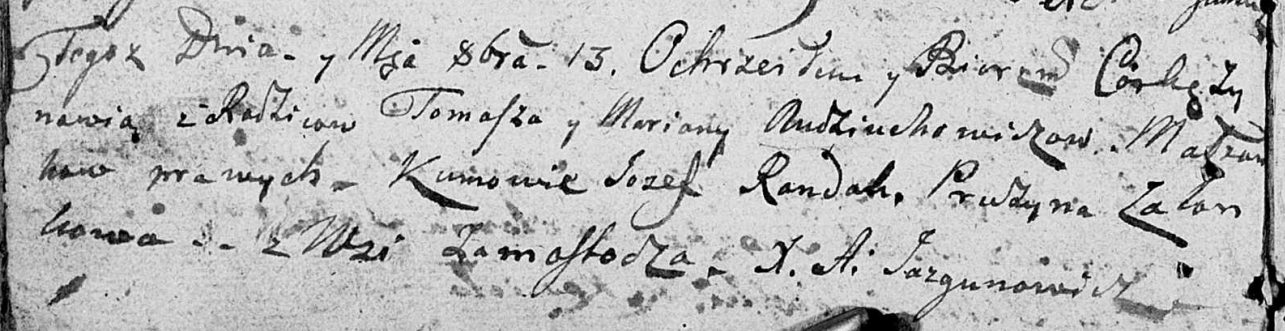 Tegoż Dnia - y Mca 8bra - 13. Ochrzcilem y Bierzm Córkę Zy
nowią z Rodziców Tomasza y Maryany Audziuchowiczow. Małżon
kow prawych - Kumowie Jozef Randak, Pruzyna Zalon
kowa - - z Wsi Zamostocza - X. A. Jazgunowicz